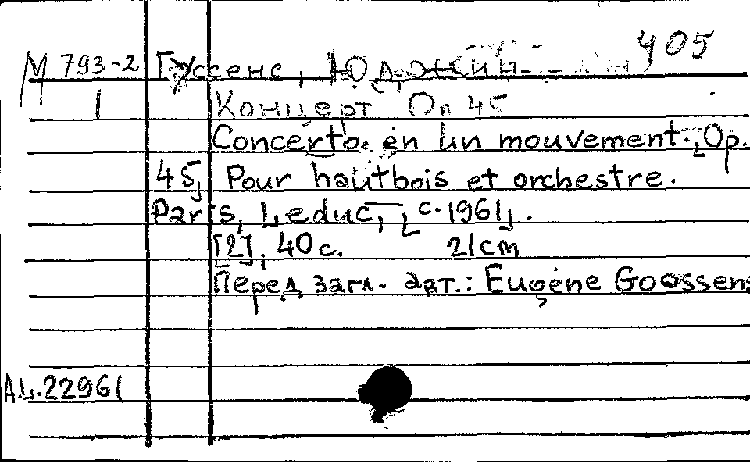 405
М 793-2 Гуссенс, Юджин
1 Концерт Op 45
Concerto en un mouvement. [Op.
45] Pour hautbois et orchestre.
Paris, Leduc, [c. 1961].
[2], 40 с. 21 cm
Перед загл. авт.: Eugène Goossens
AL.22961